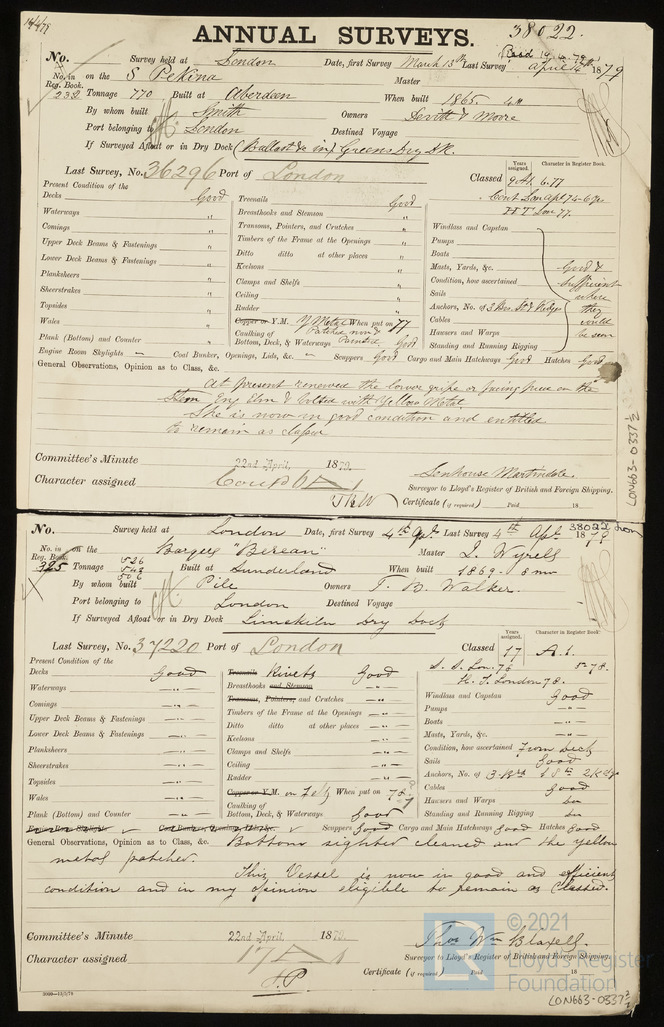 14/4/79
ANNUAL SURVEYS. 38022.
No. Survey held at London Date, first Survey March 13th Last Survey April 4th 1879
No. in Reg. Book. 232 on the S Pekina Master
Tonnage 770 Built at Aberdeen When built 1865. 4m
By whom built Smith Owners Devitt & Moore
Port belonging to London Destined Voyage
If Surveyed Afloat or in Dry Dock (Ballast & in) Greens Dry Dk.
Last Survey, No. 36296 Port of London Classed
Years assigned. Character in Register Book.
9 A1. 6.77
Present Condition of the
Decks Good Treenails Good
Waterways " Breasthooks and Stemson " Windlass and Capstan
Comings " Transoms, Pointers, and Crutches " Pumps
Upper Deck Beams & Fastenings " Timbers of the Frame at the Openings " Boats
Lower Deck Beams & Fastenings " Ditto ditto at other places " Masts, Yards, &c.
Planksheers " Keelsons " Condition, how ascertained
Sheerstrakes " Clamps and Shelfs " Sails
Topsides " Ceiling " Anchors, No. of
Wales " Rudder " Cables
Good & sufficient where they could be seen
Copper or Y.M. Y Metal When put on 77 Hawsers and Warps
Plank (Bottom) and Counter " Caulking of Bottom, Deck, & Waterways Good Standing and Running Rigging
Engine Room Skylights Coal Bunker, Openings, Lids, &c. Scuppers Good Cargo and Main Hatchways Good Hatches Good
General Observations, Opinion as to Class, &c.
At present renewed the lower gripe or facing piece on the
Stem Eng Elm & bolted with Yellow Metal.
She is now in good condition and entitled
to remain as classed
Committee's Minute 22nd April, 1879.
Character assigned
Senhouse Martindale.
Surveyor to Lloyd's Register of British and Foreign Shipping.
Certificate (if required) Paid 18
LON663-0337 1/2
38022 Lon
No. Survey held at London Date, first Survey 4th Apl. Last Survey 4th Apl. 1879
No. in Reg. Book. 325 on the Barque "Berean" Master J. Wyrell
Tonnage 526 542 506 Built at Sunderland When built 1869 - 8 mo
By whom built Pile Owners T. B. Walker.
Port belonging to London Destined Voyage
If Surveyed Afloat or in Dry Dock Limekiln Dry Dock
Last Survey, No. 37220 Port of London Classed
Years assigned. Character in Register Book.
17 A.1.
S. S. Lon. 78 5-78.
H. T. London 78.
Present Condition of the
Decks Good Treenails Rivets Good
Waterways -"- Breasthooks and Stemson -"- Windlass and Capstan Good
Comings -"- Transoms, Pointers, and Crutches -"- Pumps -"-
Upper Deck Beams & Fastenings -"- Timbers of the Frame at the Openings -"- Boats -"-
Lower Deck Beams & Fastenings -"- Ditto ditto at other places -"- Masts, Yards, &c. -"-
Planksheers -"- Keelsons -"- Condition, how ascertained From Deck
Sheerstrakes -"- Clamps and Shelfs -"- Sails Good
Topsides -"- Ceiling -"- Anchors, No. of
Wales -"- Rudder -"- Cables Good
Copper or Y.M. on Felt When put on 78. Hawsers and Warps
Plank (Bottom) and Counter -"- Caulking of Bottom, Deck, & Waterways Good Standing and Running Rigging
Engine Room Skylights Coal Bunker, Openings, Lids, &c. Scuppers Good Cargo and Main Hatchways Good Hatches Good
General Observations, Opinion as to Class, &c. Bottom sighted cleaned and the yellow
metal patched.
This Vessel is now in good and efficient
condition and in my opinion eligible to remain as Classed.
Committee's Minute 22nd April, 1879.
Character assigned 17 A 1
Thos Wm Blaxell.
Surveyor to Lloyd's Register of British and Foreign Shipping.
Certificate (if required) Paid 18
© 2021
Lloyd's Register
Foundation
LR
LON663-0337 2/2